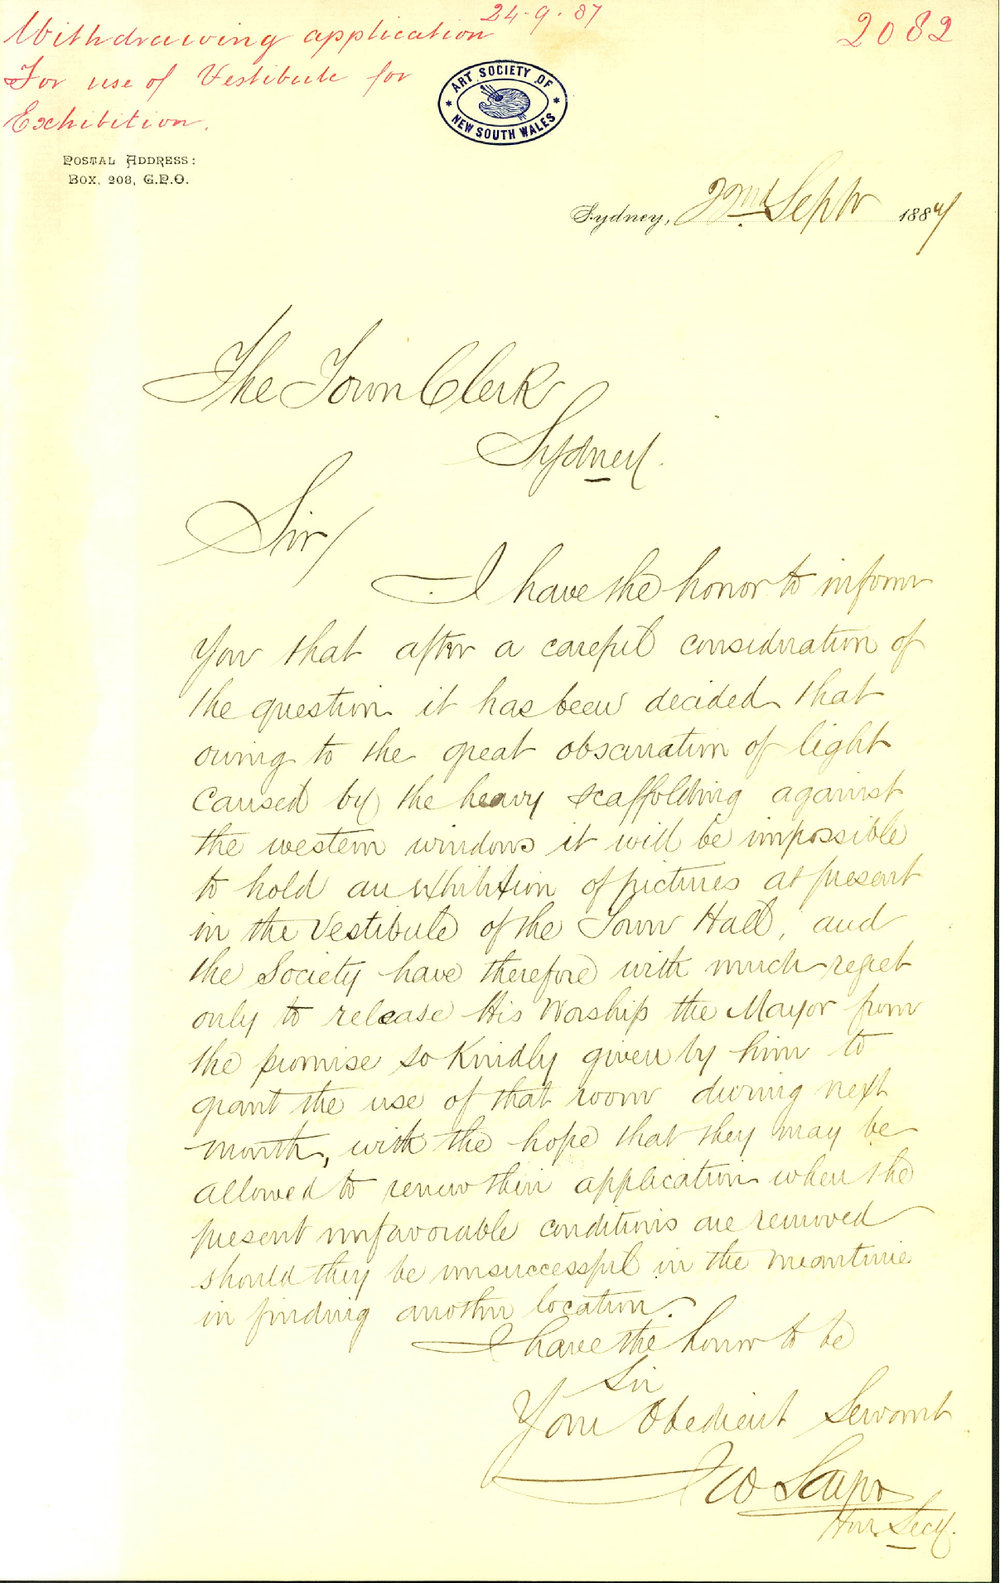 24-9-87
2082
Withdrawing application
For use of Vestibule for
Exhibition.
ART SOCIETY OF
NEW SOUTH WALES
POSTAL ADDRESS:
BOX, 208, G.P.O.
Sydney, 22nd Septr 1887
The Town Clerk
Sydney.
Sir/
I have the honor to inform
you that after a careful consideration of
the question it has been decided that
owing to the great obscuration of light
caused by the heavy scaffolding against
the western windows it will be impossible
to hold an exhibition of pictures at present
in the Vestibule of the Town Hall, and
the Society have therefore with much regret
only to release His Worship the Mayor from
the promise so kindly given by him to
grant the use of that room during next
month, with the hope that they may be
allowed to renew their application when the
present unfavorable conditions are removed
should they be unsuccessful in the meantime
in finding another location.
I have the honor to be
Sir
Your Obedient Servant
Hon. Secy.